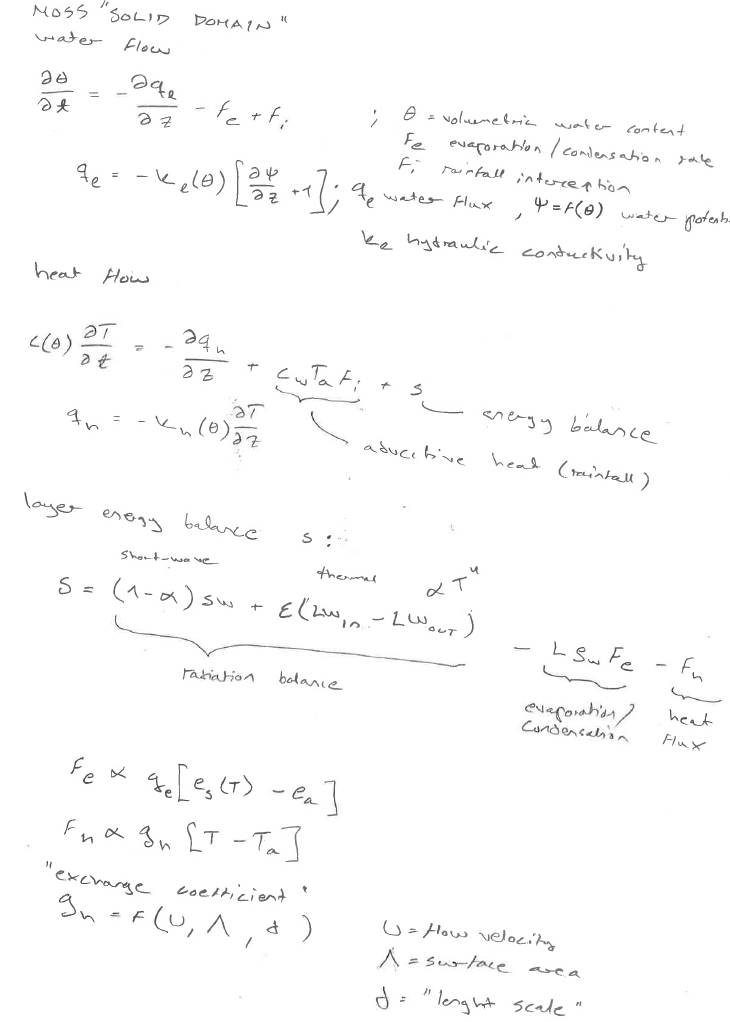 MOSS "SOLID DOMAIN"
water flow
∂θ/∂t = - ∂qe/∂z - fe + fi ; θ = volumetric water content
Fe evaporation/condensation rate
Fi rainfall interception
qe = - ke(θ) [∂ψ/∂z + 1]; qe water flux, ψ = f(θ) water potenti
ke hydraulic conductivity
heat flow
c(θ) ∂T/∂t = - ∂qh/∂z + cwTaFi + s
energy balance
qh = - kh(θ) ∂T/∂z
advective heat (rainfall)
layer energy balance s :
short-wave thermal αT⁴
S = (1-α) SW + ε(LWin - LWOUT) - LSwFe - Fh
radiation balance
evaporation/ heat
condensation flux
Fe ∝ ge[es(T) - ea]
Fh ∝ gh [T - Ta]
"exchange coefficient"
gh = f(U, Λ, d)
U = flow velocity
Λ = surface area
d = "lenght scale"